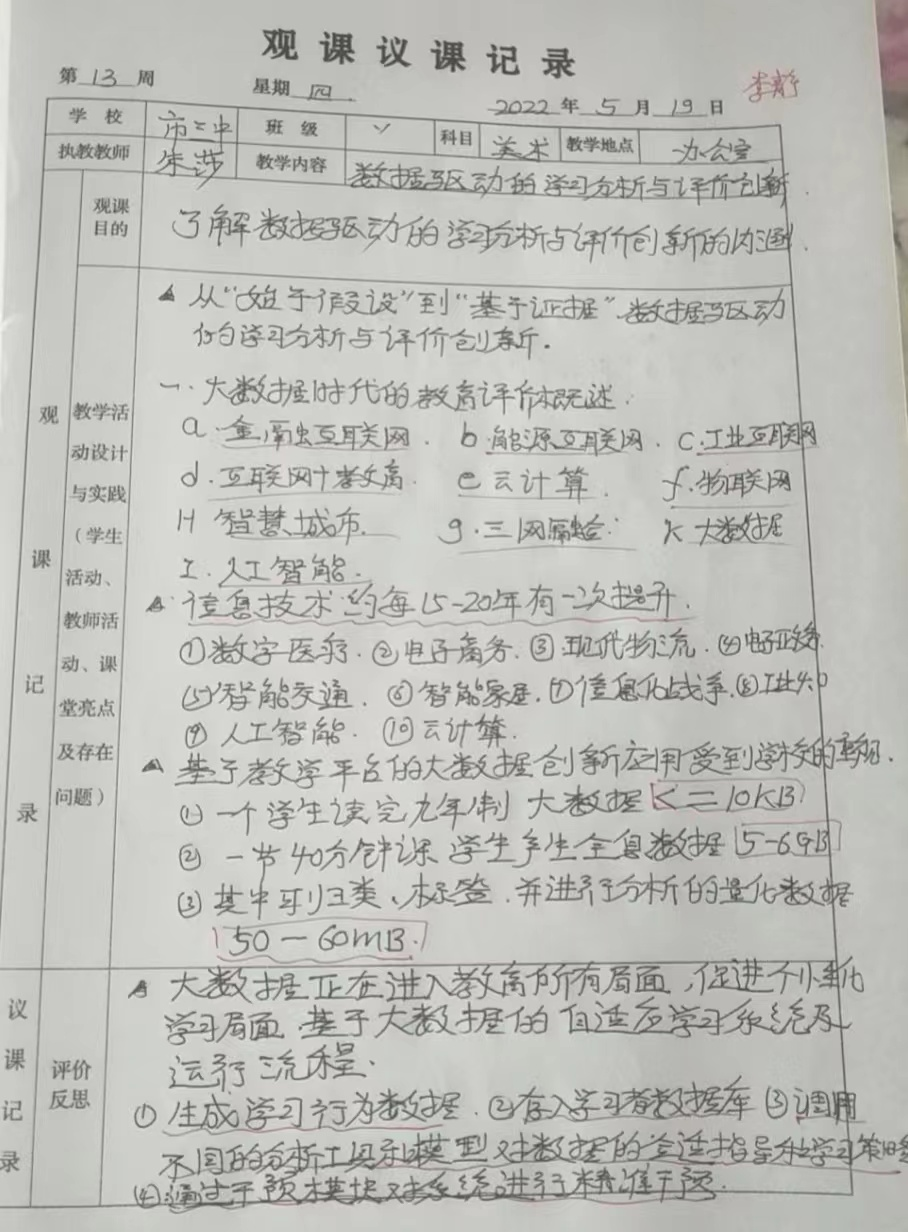 观课议课记录
第 13 周 星期 四 2022 年 5 月 19 日 李静
学校 市二中 班级 ✓ 科目 美术 教学地点 办公室
执教教师 朱莎 教学内容 数据驱动的学习分析与评价创新.
观课目的 了解数据驱动的学习分析与评价创新的内涵.
观课记录
教学活动设计与实践（学生活动、教师活动、课堂亮点及存在问题）
▲ 从“始于假设”到“基于证据”数据驱动
的学习分析与评价创新。
一. 大数据时代的教育评价概述.
a.金融互联网. b.能源互联网. c.工业互联网
d.互联网十教育. e云计算. f.物联网
H 智慧城市. g.三网融合: K 大数据
I.人工智能.
▲.信息技术约每15-20年有一次提升.
①数字医疗.②电子商务.③现代物流.④电子政务.
⑤智能交通.⑥智能家居.⑦信息化战争.⑧工业4.0
⑨人工智能.⑩云计算.
▲ 基于教学平台的大数据创新应用受到学校的重视.
① 一个学生读完九年制 大数据 <=10KB
② 一节40分钟课 学生产生全息数据 5-6GB
③ 其中可归类、标签.并进行分析的量化数据
50-60MB.
议课记录
评价反思
▲ 大数据正在进入教育所有局面,促进个性化
学习局面.基于大数据的自适应学习系统及
运行流程.
① 生成学习行为数据.②存入学习者数据库③调用
不同的分析工具和模型对数据的合适指导和学习策略
④通过干预模块对系统进行精准干预.